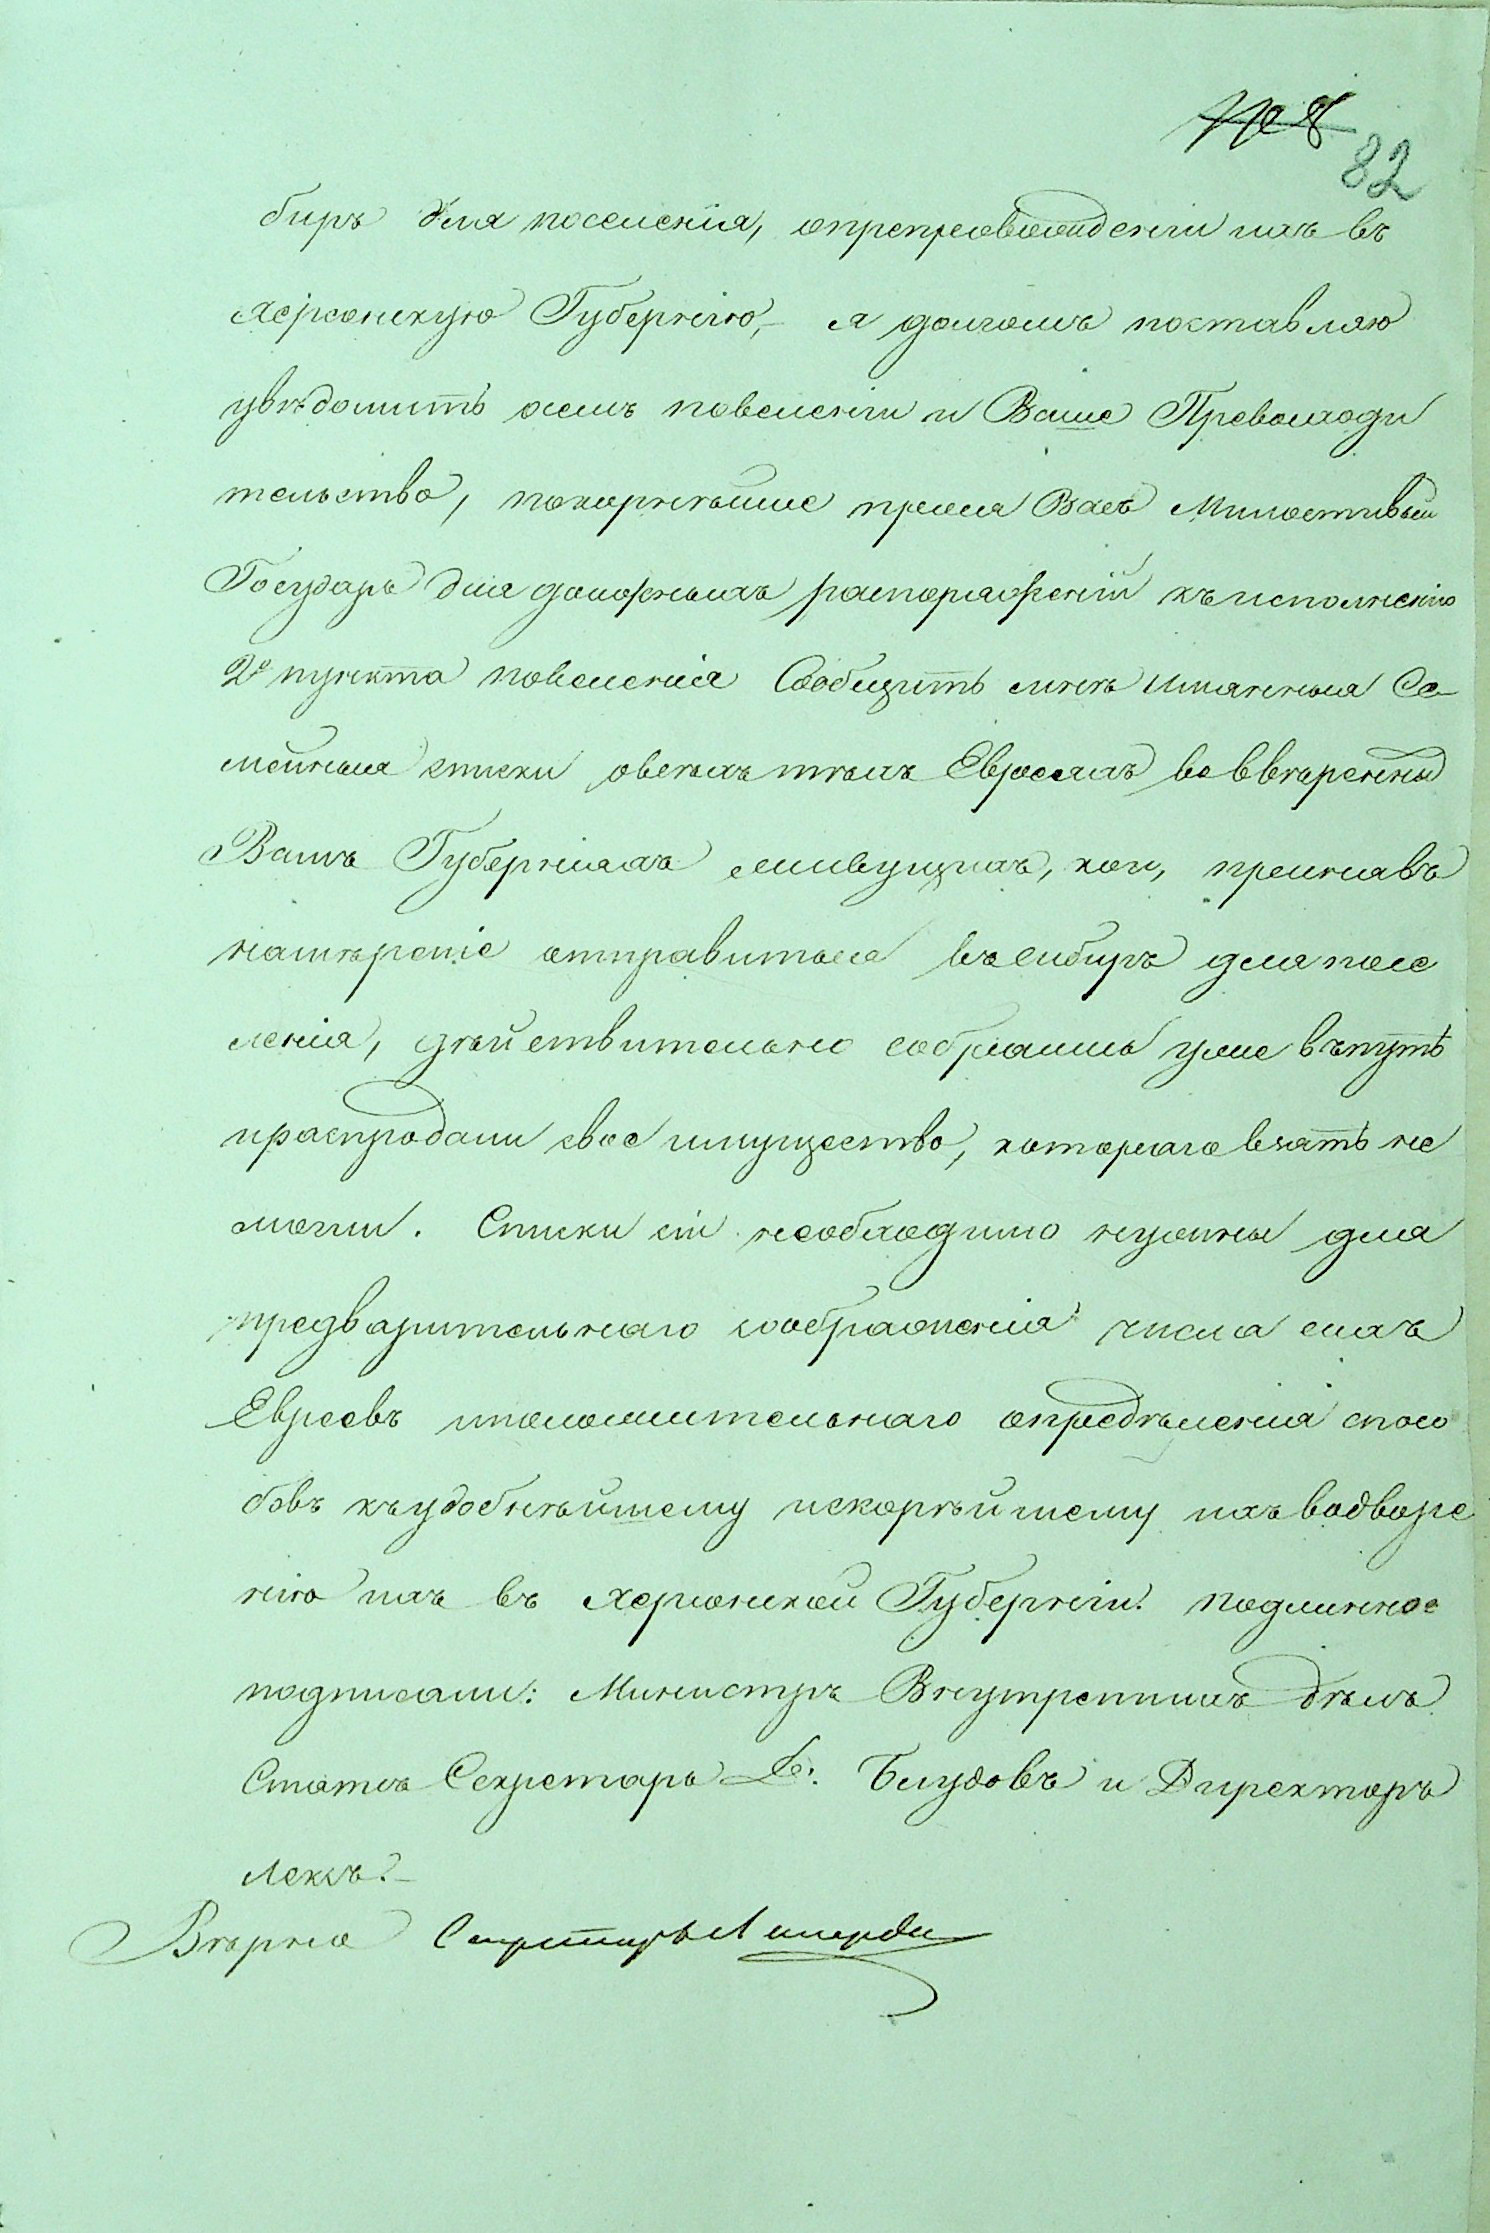 82
бирь для поселенія, опрепровожденіи ихъ въ
Херсонскую Губернію, – я долгомъ поставляю
увѣдомить осемъ повеленіи и Ваше Превосходи
тельство, покорнѣйше прося Васъ Милостивый
Государь для должныхъ распоряженій къ исполненію
2º пункта повеленія Сообщить мнѣ Имянныя Се-
мейныя списки овсѣхъ тѣхъ Евреяхъ во ввѣренны
Вамъ Губерніяхъ живущихъ, кои, принявъ
намѣреніе отправиться въ Сибирь для посе
ленія, дѣйствительно собрались уже въ путь
ираспродали свое имущество, котораго взять не
могли. Списки сіи необходимо нужны для
предварительнаго соображенія числа сихъ
Евреевъ иположительнаго опредѣленія спосо
бовъ къ удобнѣйшему искорѣйшему ихъ водворе
нію ихъ въ Херсонской Губерніи. Подлинное
подписали: Министръ Внутреннихъ дѣлъ
Статсъ Секретарь Д. Блудовъ и Директоръ
Лексъ. –
Вѣрно Секретарь